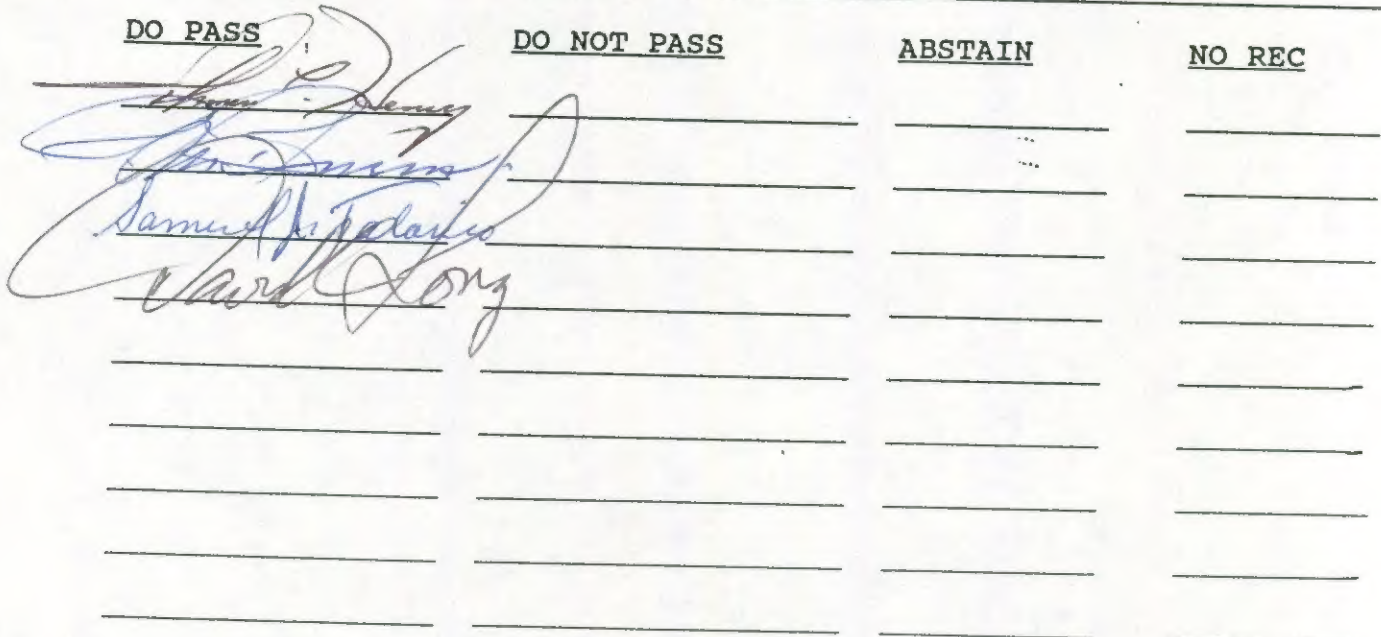 DO PASS DO NOT PASS ABSTAIN NO REC
Henry
Samuel
David Long